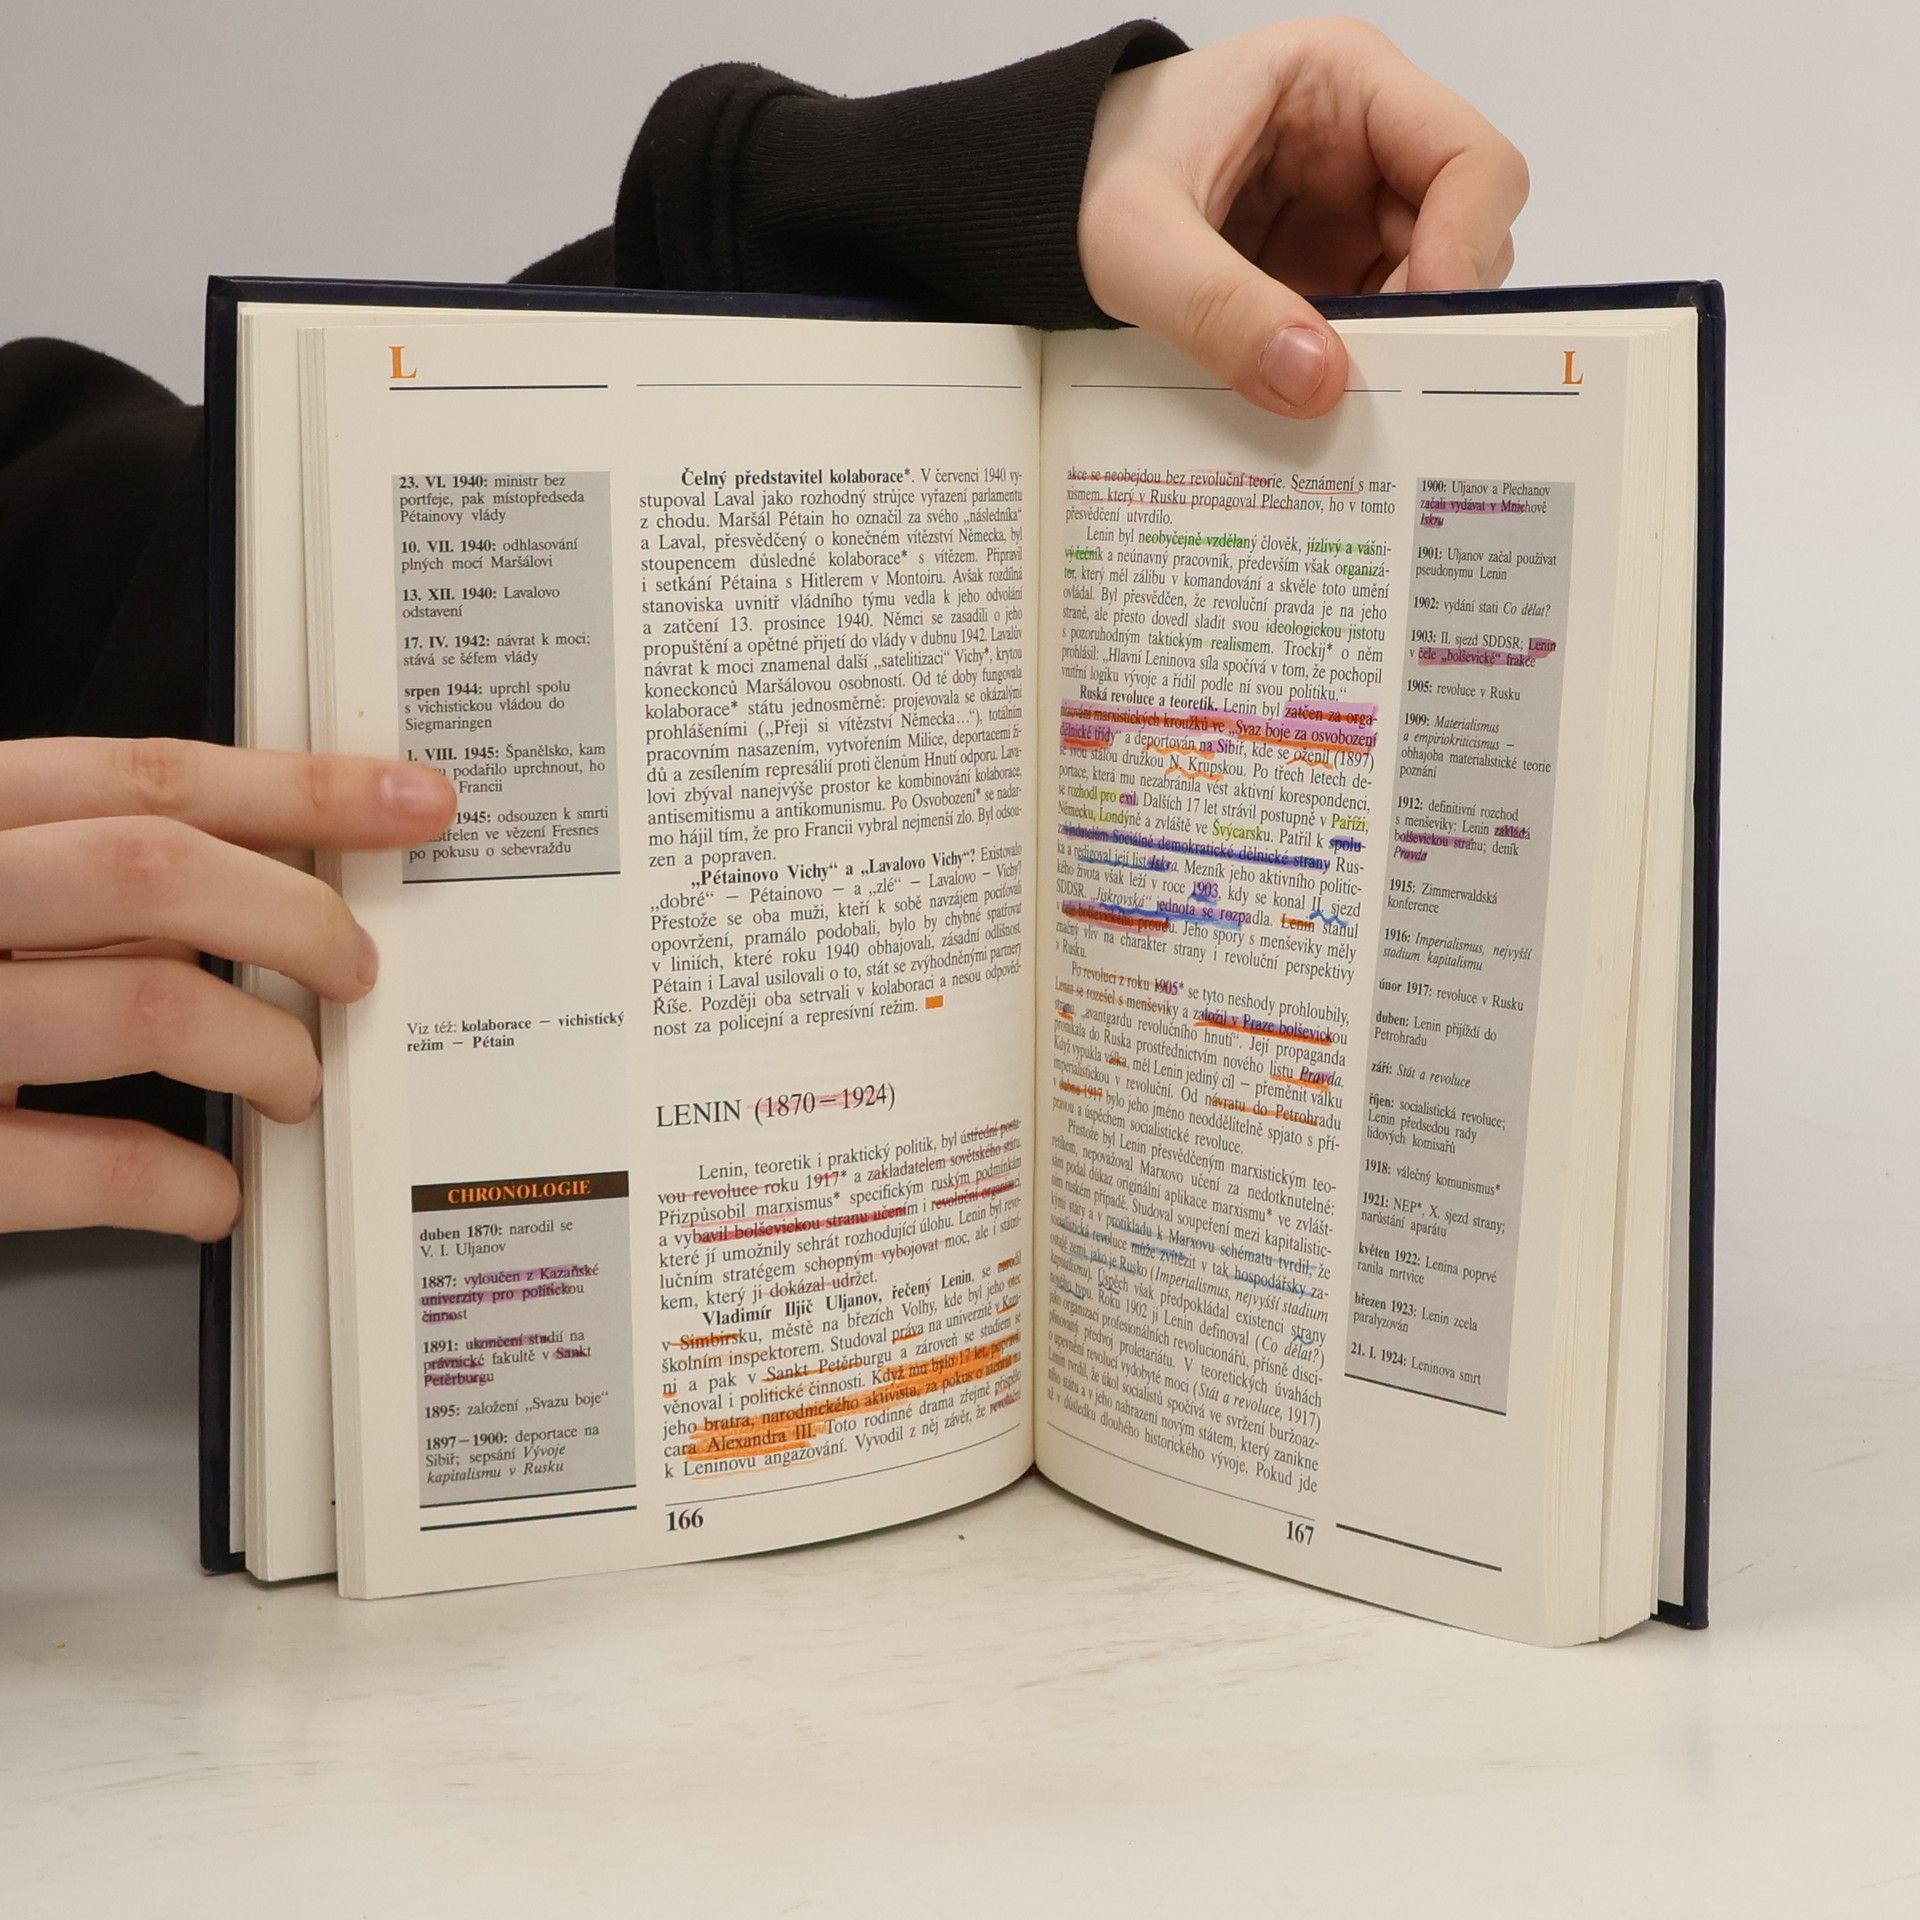 L
23. VI. 1940: ministr bez
portfeje, pak místopředseda
Pétainovy vlády
10. VII. 1940: odhlasování
plných mocí Maršálovi
13. XII. 1940: Lavalovo
odstavení
17. IV. 1942: návrat k moci;
stává se šéfem vlády
srpen 1944: uprchl spolu
s vichistickou vládou do
Siegmaringen
1. VIII. 1945: Španělsko, kam
podařilo uprchnout, ho
Francii
1945: odsouzen k smrti
ve vězení Fresnes
po pokusu o sebevraždu
Viz též: kolaborace — vichistický
režim — Pétain
CHRONOLOGIE
duben 1870: narodil se
V. I. Uljanov
1887: vyloučen z Kazaňské
univerzity pro politickou
činnost
1891: ukončení studií na
právnické fakultě v Sankt
Petěrburgu
1895: založení „Svazu boje“
1897—1900: deportace na
Sibiř; sepsání Vývoje
kapitalismu v Rusku
Čelný představitel kolaborace*. V červenci 1940 vy-
stupoval Laval jako rozhodný strůjce vyřazení parlamentu
z chodu. Maršál Pétain ho označil za svého „následníka“
a Laval, přesvědčený o konečném vítězství Německa, byl
stoupencem důsledné kolaborace* s vítězem. Připravil
i setkání Pétaina s Hitlerem v Montoiru. Avšak rozdílná
stanoviska uvnitř vládního týmu vedla k jeho odvolání
a zatčení 13. prosince 1940. Němci se zasadili o jeho
propuštění a opětné přijetí do vlády v dubnu 1942. Lavalův
návrat k moci znamenal další „satelitizaci“ Vichy*, krytou
koneckonců Maršálovou osobností. Od té doby fungovala
kolaborace* státu jednosměrně: projevovala se okázalými
prohlášeními („Přeji si vítězství Německa…“), totálním
pracovním nasazením, vytvořením Milice, deportacemi ži-
dů a zesílením represálií proti členům Hnutí odporu. Lava-
lovi zbýval nanejvýše prostor ke kombinování kolaborace,
antisemitismu a antikomunismu. Po Osvobození* se nadar-
mo hájil tím, že pro Francii vybral nejmenší zlo. Byl odsou-
zen a popraven.
„Pétainovo Vichy“ a „Lavalovo Vichy“? Existovalo
„dobré“ — Pétainovo — a „zlé“ — Lavalovo — Vichy?
Přestože se oba muži, kteří k sobě navzájem pociťovali
opovržení, pramálo podobali, bylo by chybné spatřovat
v liniích, které roku 1940 obhajovali, zásadní odlišnost.
Pétain i Laval usilovali o to, stát se zvýhodněnými partnery
Říše. Později oba setrvali v kolaboraci a nesou odpověd-
nost za policejní a represívní režim.
LENIN (1870—1924)
Lenin, teoretik i praktický politik, byl ústřední posta-
vou revoluce roku 1917* a zakladatelem sovětského státu.
Přizpůsobil marxismus* specifickým ruským podmínkám
a vybavil bolševickou stranu učením i revoluční organizací,
které jí umožnily sehrát rozhodující úlohu. Lenin byl revo-
lučním stratégem schopným vybojovat moc, ale i státní-
kem, který ji dokázal udržet.
Vladimír Iljič Uljanov, řečený Lenin, se narodil
v Simbirsku, městě na březích Volhy, kde byl jeho otec
školním inspektorem. Studoval práva na univerzitě v Kaza-
ni a pak v Sankt Petěrburgu a zároveň se studiem se
věnoval i politické činnosti. Když mu bylo 17 let, popravili
jeho bratra, narodnického aktivistu, za pokus o atentát na
cara Alexandra III. Toto rodinné drama zřejmě přispělo
k Leninovu angažování. Vyvodil z něj závěr, že revoluční
166
L
akce se neobejdou bez revoluční teorie. Seznámení s mar-
xismem, který v Rusku propagoval Plechanov, ho v tomto
přesvědčení utvrdilo.
Lenin byl neobyčejně vzdělaný člověk, jízlivý a vášni-
vý řečník a neúnavný pracovník, především však organizá-
tor, který měl zálibu v komandování a skvěle toto umění
ovládal. Byl přesvědčen, že revoluční pravda je na jeho
straně, ale přesto dovedl sladit svou ideologickou jistotu
s pozoruhodným taktickým realismem. Trockij* o něm
prohlásil: „Hlavní Leninova síla spočívá v tom, že pochopil
vnitřní logiku vývoje a řídil podle ní svou politiku.“
Ruská revoluce a teoretik. Lenin byl zatčen za orga-
nizování marxistických kroužků ve „Svaz boje za osvobození
dělnické třídy“ a deportován na Sibiř, kde se oženil (1897)
se svou stálou družkou N. Krupskou. Po třech letech de-
portace, která mu nezabránila vést aktivní korespondenci,
se rozhodl pro exil. Dalších 17 let strávil postupně v Paříži,
Německu, Londýně a zvláště ve Švýcarsku. Patřil k spolu-
zakladatelům Sociálně demokratické dělnické strany Rus-
ka a redigoval její list Iskra. Mezník jeho aktivního politic-
kého života však leží v roce 1903, kdy se konal II. sjezd
SDDSR. „Jiskrovská“ jednota se rozpadla. Lenin stanul
v čele bolševického proudu. Jeho spory s menševiky měly
značný vliv na charakter strany i revoluční perspektivy
v Rusku.
Po revoluci z roku 1905* se tyto neshody prohloubily,
Lenin se rozešel s menševiky a založil v Praze bolševickou
stranu, „avantgardu revolučního hnutí“. Její propaganda
pronikala do Ruska prostřednictvím nového listu Pravda.
Když vypukla válka, měl Lenin jediný cíl — přeměnit válku
imperialistickou v revoluční. Od návratu do Petrohradu
v dubnu 1917 bylo jeho jméno neoddělitelně spjato s pří-
pravou a úspěchem socialistické revoluce.
Přestože byl Lenin přesvědčeným marxistickým teo-
retikem, nepovažoval Marxovo učení za nedotknutelné:
sám podal důkaz originální aplikace marxismu* ve zvlášt-
ním ruském případě. Studoval soupeření mezi kapitalistic-
kými státy a v protikladu k Marxovu schématu tvrdil, že
socialistická revoluce může zvítězit v tak hospodářsky za-
ostalé zemi, jako je Rusko (Imperialismus, nejvyšší stadium
kapitalismu). Úspěch však předpokládal existenci strany
nového typu. Roku 1902 ji Lenin definoval (Co dělat?)
jako organizaci profesionálních revolucionářů, přísně disci-
plinovaný předvoj proletariátu. V teoretických úvahách
o upevnění revolucí vydobyté moci (Stát a revoluce, 1917)
Lenin tvrdil, že úkol socialistů spočívá ve svržení buržoaz-
ního státu a v jeho nahrazení novým státem, který zanikne
až v důsledku dlouhého historického vývoje. Pokud jde
167
1900: Uljanov a Plechanov
začali vydávat v Mnichově
Iskru
1901: Uljanov začal používat
pseudonymu Lenin
1902: vydání stati Co dělat?
1903: II. sjezd SDDSR; Lenin
v čele „bolševické“ frakce
1905: revoluce v Rusku
1909: Materialismus
a empiriokriticismus —
obhajoba materialistické teorie
poznání
1912: definitivní rozchod
s menševiky; Lenin zakládá
bolševickou stranu; deník
Pravda
1915: Zimmerwaldská
konference
1916: Imperialismus, nejvyšší
stadium kapitalismu
únor 1917: revoluce v Rusku
duben: Lenin přijíždí do
Petrohradu
září: Stát a revoluce
říjen: socialistická revoluce;
Lenin předsedou rady
lidových komisařů
1918: válečný komunismus*
1921: NEP*, X. sjezd strany;
narůstání aparátu
květen 1922: Lenina poprvé
ranila mrtvice
březen 1923: Lenin zcela
paralyzován
21. I. 1924: Leninova smrt